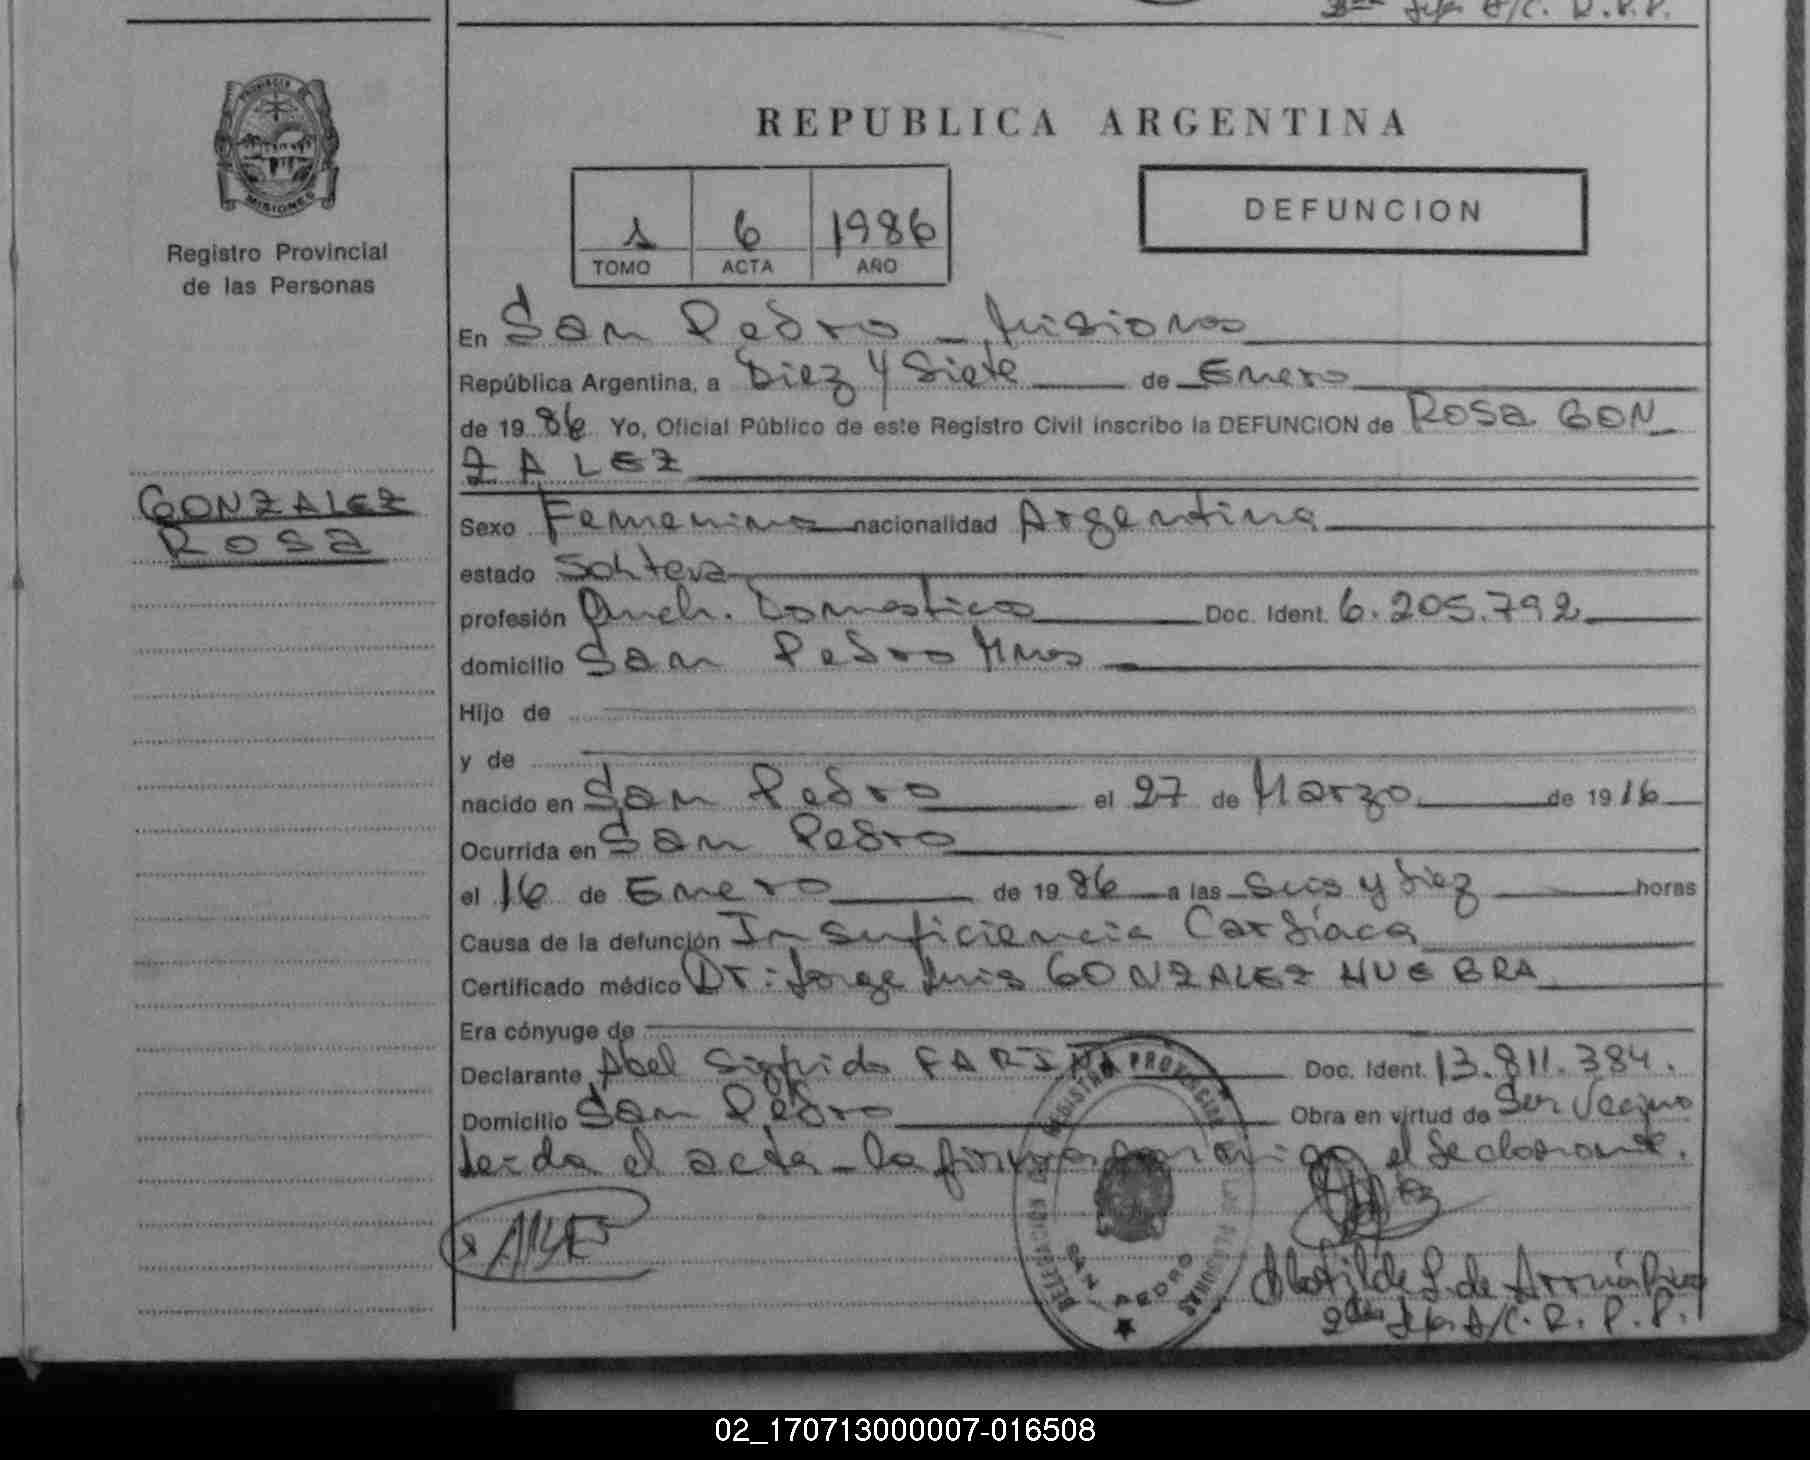 2da Jefa A/C. R.P.P.
PROVINCIA DE
MISIONES
Registro Provincial
de las Personas
REPUBLICA ARGENTINA
1 6 1986
TOMO ACTA AÑO
DEFUNCION
En San Pedro - Misiones
República Argentina, a Diez y Siete de Enero
de 1986 Yo, Oficial Público de este Registro Civil inscribo la DEFUNCION de ROSA GON
ZALEZ
GONZALEZ
ROSA
Sexo Femenino nacionalidad Argentina
estado Soltera
profesión Domesticos Doc. Ident. 6.205.792
domicilio San Pedro Mnes
Hijo de
y de
nacido en San Pedro el 27 de Marzo de 1916
Ocurrida en San Pedro
el 16 de Enero de 1986 a las Seis y diez horas
Causa de la defunción Insuficiencia Cardíaca
Certificado médico Dr: Jorge Luis GONZALEZ HUEBRA
Era cónyuge de
Declarante Abel Sigfrido FARIÑA Doc. Ident. 13.811.384.
Domicilio San Pedro Obra en virtud de Ser Vecino
Leida el acta - la firma conmigo el declarante.
REGISTRO PROVINCIAL DE LAS PERSONAS
DELEGACION
SAN PEDRO
Matilde de
2da Jefa A/C. R. P. P.
02_170713000007-016508